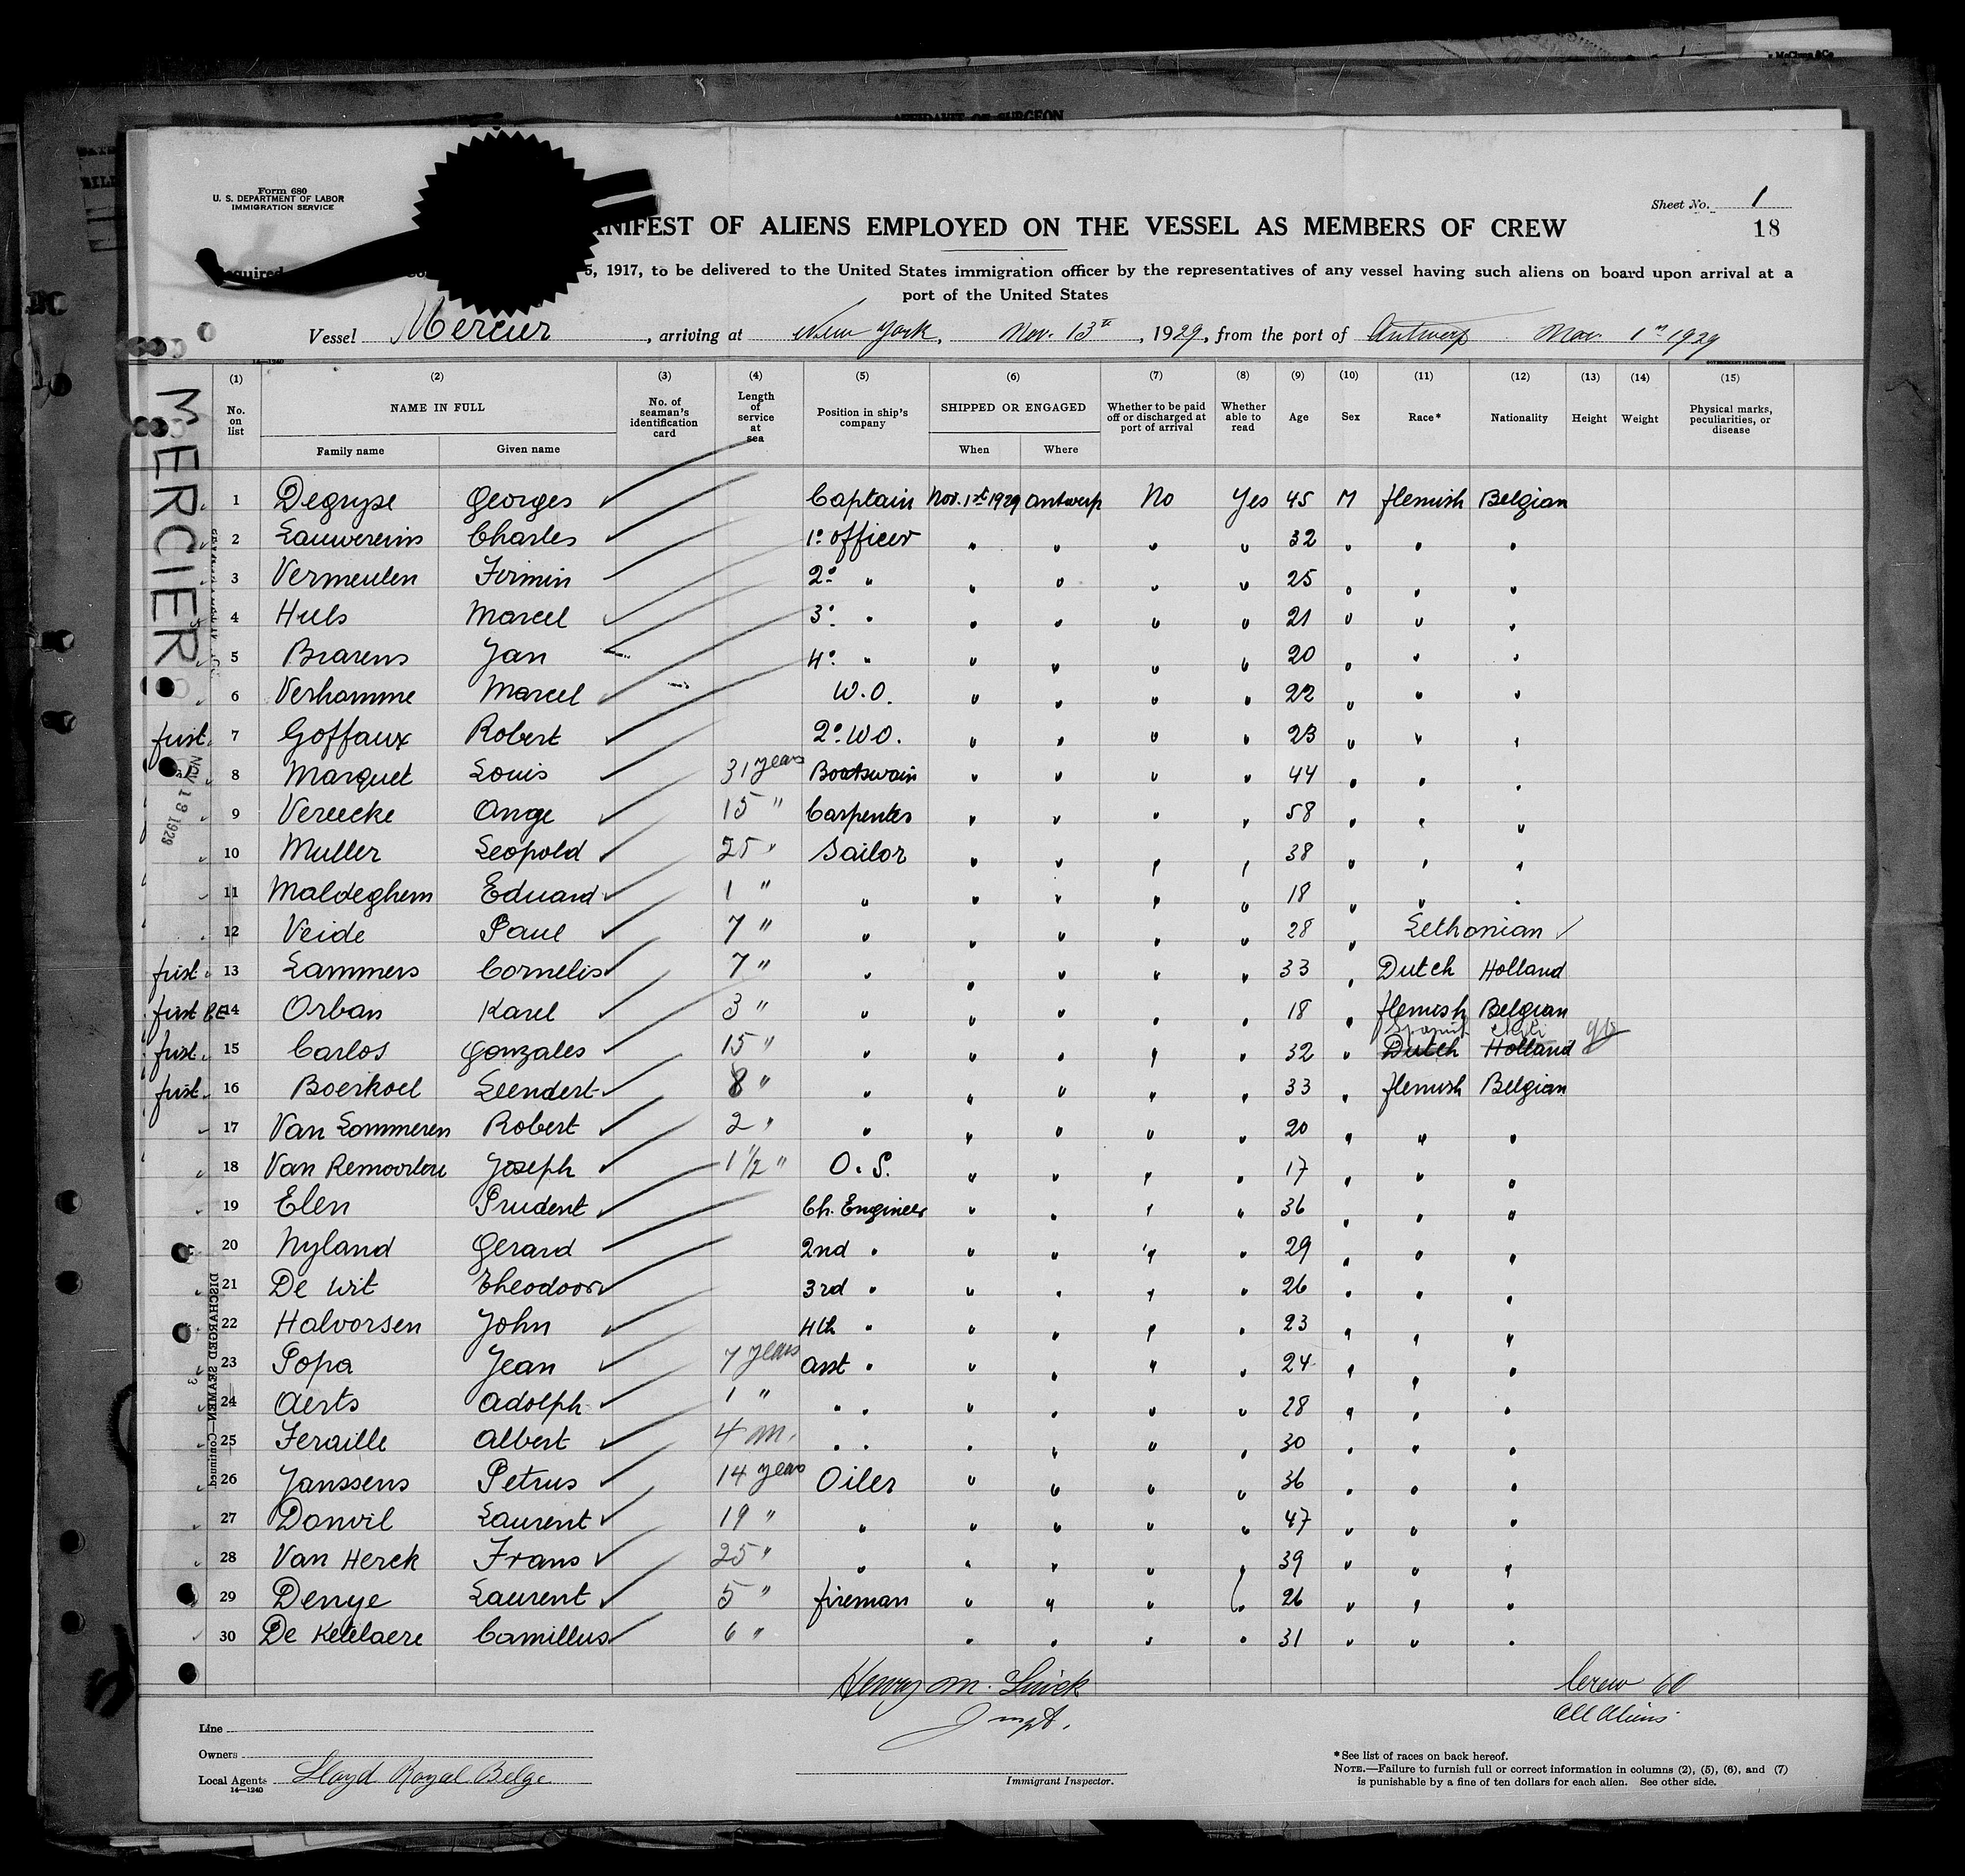 AFFIDAVIT OF SURGEON
Form 680
U. S. DEPARTMENT OF LABOR
IMMIGRATION SERVICE
Sheet No. 1
18
ANIFEST OF ALIENS EMPLOYED ON THE VESSEL AS MEMBERS OF CREW
Required 5, 1917, to be delivered to the United States immigration officer by the representatives of any vessel having such aliens on board upon arrival at a
port of the United States
Vessel Mercier, arriving at New York, Nov. 13th, 1929, from the port of Antwerp Nov. 1st 1929
14—1240 GOVERNMENT PRINTING OFFICE
MERCIER
(1) (2) (3) (4) (5) (6) (7) (8) (9) (10) (11) (12) (13) (14) (15)
No. on list NAME IN FULL Family name Given name No. of seaman's identification card Length of service at sea Position in ship's company SHIPPED OR ENGAGED When Where Whether to be paid off or discharged at port of arrival Whether able to read Age Sex Race* Nationality Height Weight Physical marks, peculiarities, or disease
1 Degryse Georges Captain Nov. 1st 1929 Antwerp No Yes 45 M Flemish Belgian
2 Lauwereins Charles 1° officer " " " " 32 " " "
3 Vermeulen Firmin 2° " " " " " 25 " " "
4 Huls Marcel 3° " " " " " 21 " " "
5 Brarens Jan 4° " " " " " 20 " " "
6 Verhamme Marcel W.O. " " " " 22 " " "
first 7 Goffaux Robert 2° W.O. " " " " 23 " " "
8 Marquet Louis 31 years Boatswain " " " " 44 " " "
9 Vereecke Ange 15 " Carpenter " " " " 58 " " "
10 Muller Leopold 25 " Sailor " " " " 38 " " "
11 Maldeghem Eduard 1 " " " " " " 18 " " "
12 Veide Paul 7 " " " " " " 28 " Lethonian
first 13 Lammers Cornelis 7 " " " " " " 33 " Dutch Holland
first 14 Orban Karel 3 " " " " " " 18 " Flemish Belgian
first 15 Carlos Gonzales 15 " " " " " " 32 " Dutch Holland Spanish Chili
first 16 Boerkoel Leendert 8 " " " " " " 33 " Flemish Belgian
17 Van Lommeren Robert 2 " " " " " " 20 " " "
18 Van Remoortere Joseph 1 1/2 " O. S. " " " " 17 " " "
19 Elen Prudent Ch. Engineer " " " " 36 " " "
20 Nyland Gerard 2nd " " " " " 29 " " "
21 De Wit Theodoor 3rd " " " " " 26 " " "
22 Halvorsen John 4th " " " " " 23 " " "
23 Popa Jean 7 years asst " " " " " 24 " " "
24 Aerts Adolph 1 " " " " " " " 28 " " "
25 Feraille Albert 4 m. " " " " " " 30 " " "
26 Janssens Petrus 14 years Oiler " " " " 36 " " "
27 Danvil Laurent 19 " " " " " " 47 " " "
28 Van Herck Frans 25 " " " " " " 39 " " "
29 Denye Laurent 5 " fireman " " " " 26 " " "
30 De Ketelaere Camillus 6 " " " " " 31 " " "
NOV 13 1929
DISCHARGED SEAMEN—Continued
Henry M.
Inspt.
Crew 60
All Aliens
Line
Owners
Local Agents Lloyd Royal Belge
14—1240
Immigrant Inspector.
*See list of races on back hereof.
NOTE.—Failure to furnish full or correct information in columns (2), (5), (6), and (7)
is punishable by a fine of ten dollars for each alien. See other side.